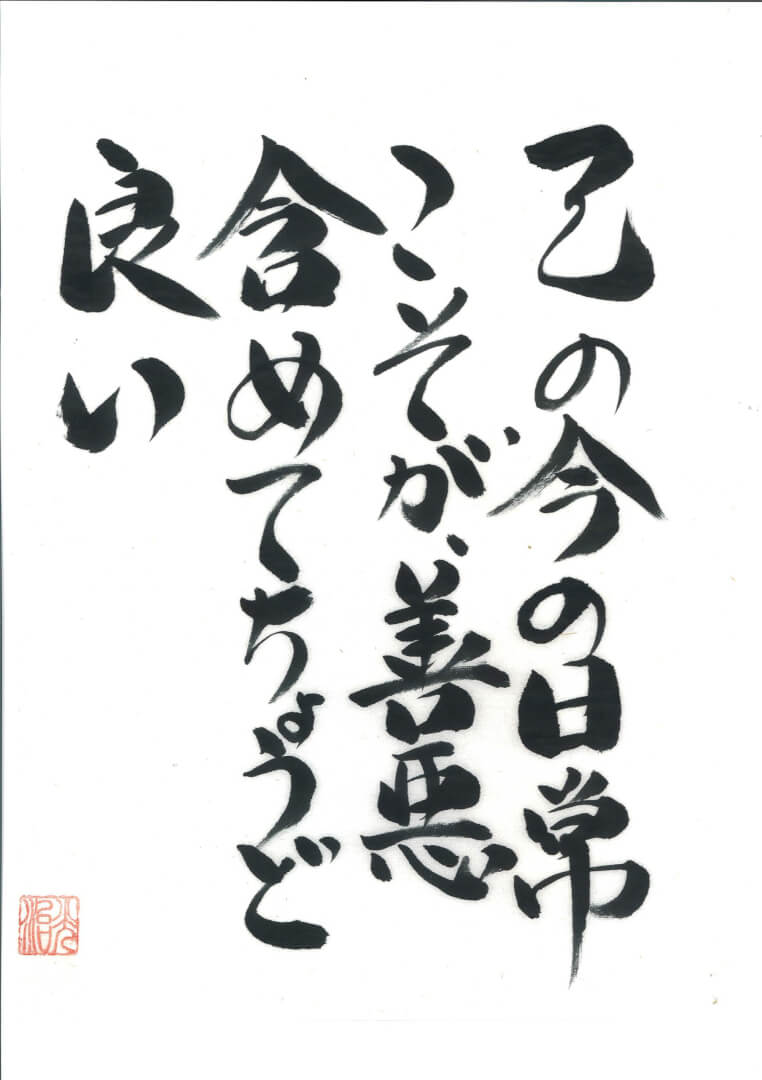 己の今の日常
こそが、善悪
含めてちょうど
良い